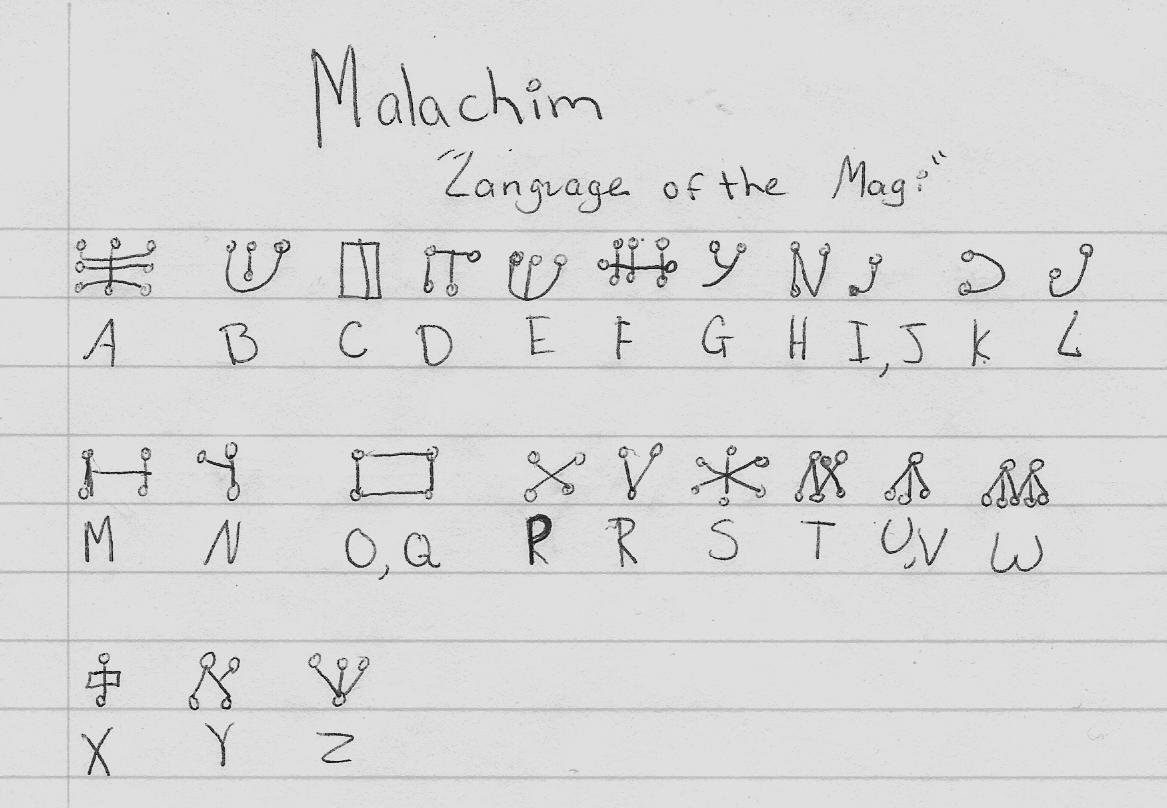 Malachim
"Language of the Magi"
A B C D E F G H I,J K L
M N O,Q R R S T U,V W
X Y Z